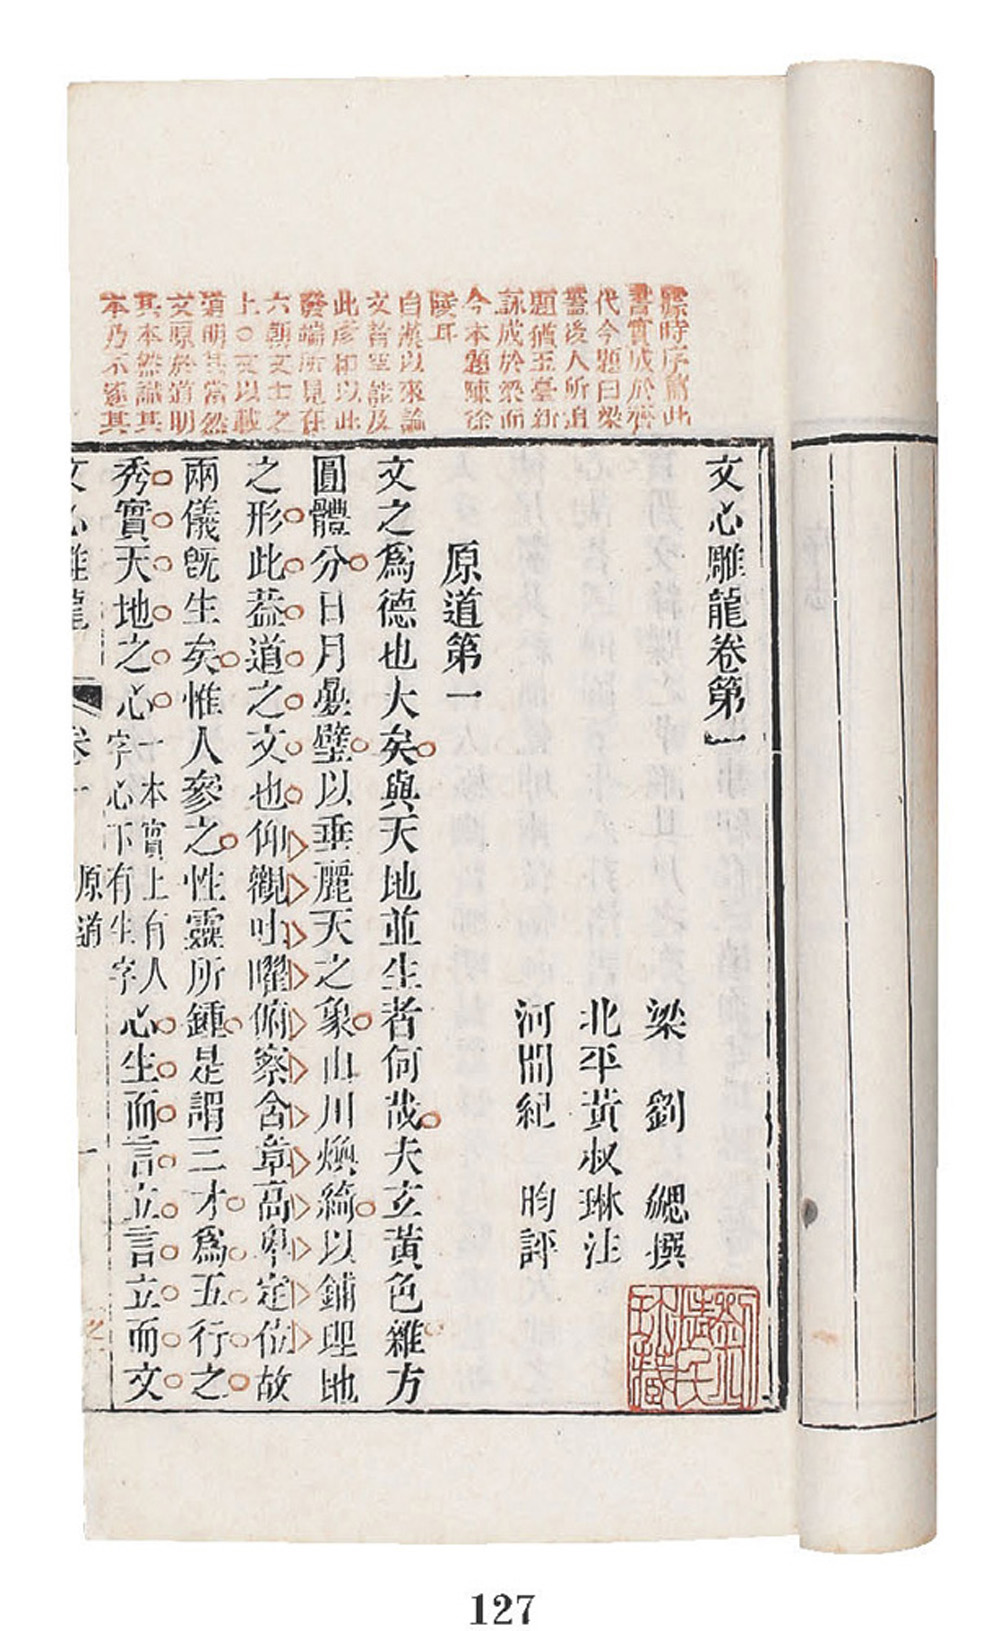 據時序篇此
書實成於齊
代今題曰梁
蓋後人所追
題猶玉臺新
詠成於梁而
今本題陳徐
陵耳
自漢以來論
文者罕能及
此彥和以此
發端所見在
六朝文士之
上○文以載
道明其當然
文原於道明
其本然識其
本乃不逐其
文心雕龍卷第一
梁 劉 勰撰
北平黃叔琳注
河間紀 昀評
原道第一
文之爲德也大矣與天地並生者何哉夫玄黃色雜方
圓體分日月疊璧以垂麗天之象山川煥綺以鋪理地
之形此葢道之文也仰觀吐曜俯察含章高卑定位故
兩儀旣生矣惟人參之性靈所鍾是謂三才爲五行之
秀實天地之心一本實上有人字心下有生字心生而言立言立而文
文心雕龍 卷一 原道 一
127